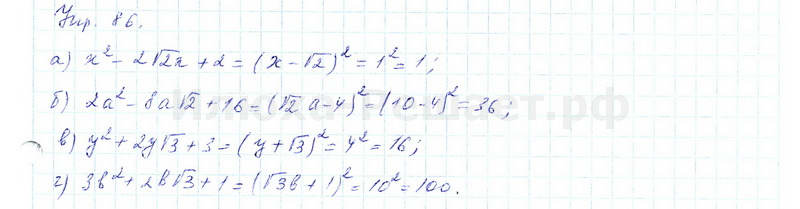 Упр. 86.
а) x² - 2√2x + 2 = (x - √2)² = 1² = 1;
б) 2a² - 8a√2 + 16 = (√2a - 4)² = (10 - 4)² = 36;
в) y² + 2y√3 + 3 = (y + √3)² = 4² = 16;
г) 3b² + 2b√3 + 1 = (√3b + 1)² = 10² = 100.